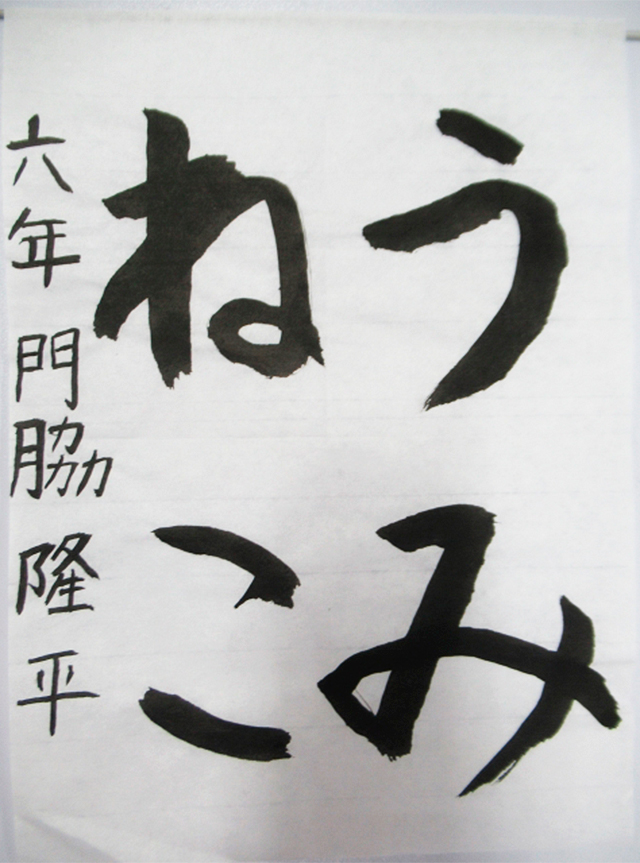 うみ
ねこ
六年 門脇 隆平